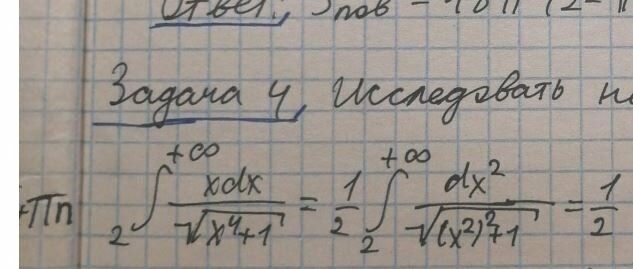 Ответ:, Sпов =
Задача 4, Исследовать
+πn ₂∫^{+∞} xdx/√(x⁴+1) = 1/2 ₂∫^{+∞} dx²/√((x²)²+1) = 1/2